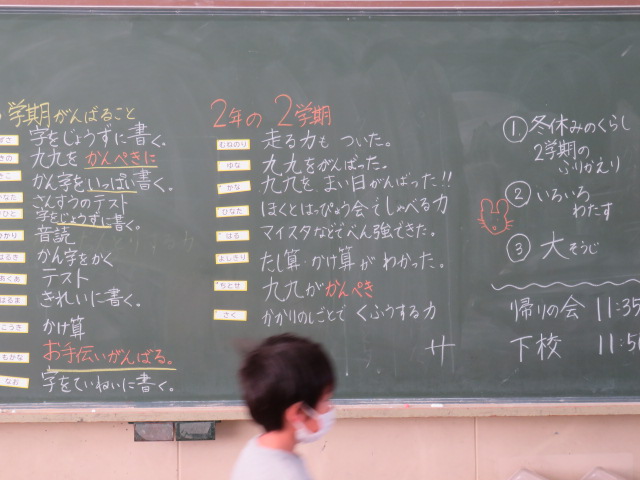 学期がんばること
字をじょうずに書く。
九九をかんぺきに
かん字をいっぱい書く。
さんすうのテスト
字をじょうずに書く。
音読
かん字をかく
テスト
きれいに書く。
かけ算
お手伝いがんばる。
字をていねいに書く。
かなた
ひと
かり
はるき
おくあ
はるま
こうき
もかな
なお
2年の2学期
むねのり 走る力もついた。
ゆな 九九をがんばった。
かな 九九をまい日がんばった!!
ひなた ほくとはっぴょう会でしゃべる力
はる マイスタなどでべん強できた。
よしきり たし算・かけ算がわかった。
ちとせ 九九がかんぺき
さく かかりのしごとでくふうする力
サ
① 冬休みのくらし
2学期の
ふりかえり
② いろいろ
わたす
③ 大そうじ
帰りの会 11:35
下校 11:50